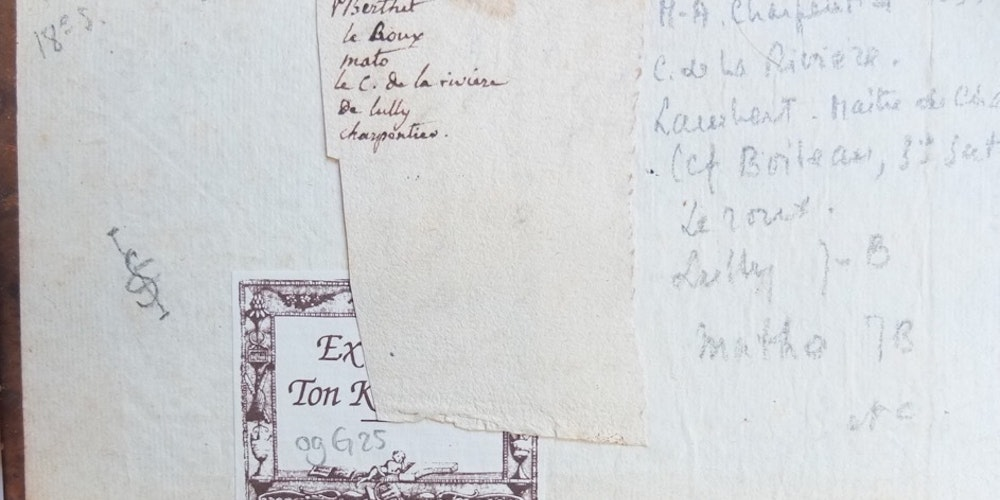 18e s.
Berthet
le Roux
mato
le C. de la riviere
De lully
charpentier.
M-A. Charpent
C. de la Riviere.
Lambert. Maître de
(cf Boileau, 3e Sat
Le roux.
Lully }- B
Matho 7B
Ex
Ton K
og G 25